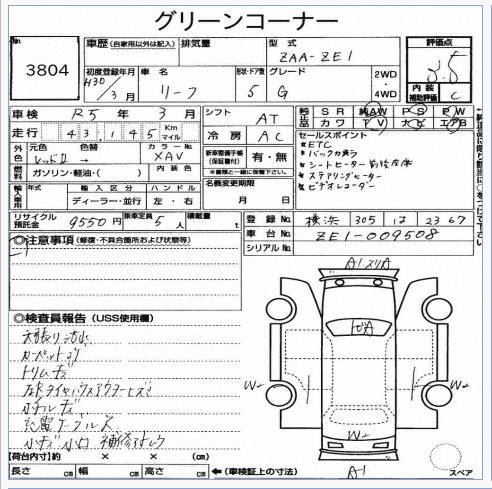 グリーンコーナー
No.
3804
車歴 (自家用以外は記入)
排気量
型式
ZAA-ZE1
評価点
3.5
内装補助評価
C
初度登録年月
H30
3月
車名
リーフ
形状・ドア数
5
グレード
G
2WD
4WD
車検
R5年 3月
シフト
AT
純正品
SR AW PS PW
カワ TV ナビ エアB
走行
43,145
Km
マイル
冷房
AC
セールスポイント
ETC
バックカメラ
シートヒーター 前後席
ステアリングヒーター
ビデオレコーダー
外色
元色
色替
カラーNo.
レッドII
XAV
燃料
ガソリン・軽油・( )
内装色
新車整備手帳 (保証書付)
有・無
輸入車用
年式
輸入区分
ハンドル
ディーラー・並行
左・右
名義変更期限
月 日
リサイクル預託金
9550円
乗車定員
5人
積載量
t
登録No.
横浜 305 は 2367
車台No.
ZE1-009508
シリアルNo.
◎注意事項 (修復・不具合箇所および状態等)
A1 スリA
W
W
W
A-1
スペア
◎検査員報告 (USS使用欄)
天張り汚れ
カーペットコゲ
トリムキズ
小キズ 小凹
【荷台内寸】約 × × (cm)
長さ cm 幅 cm 高さ cm
←(車検証上の寸法)